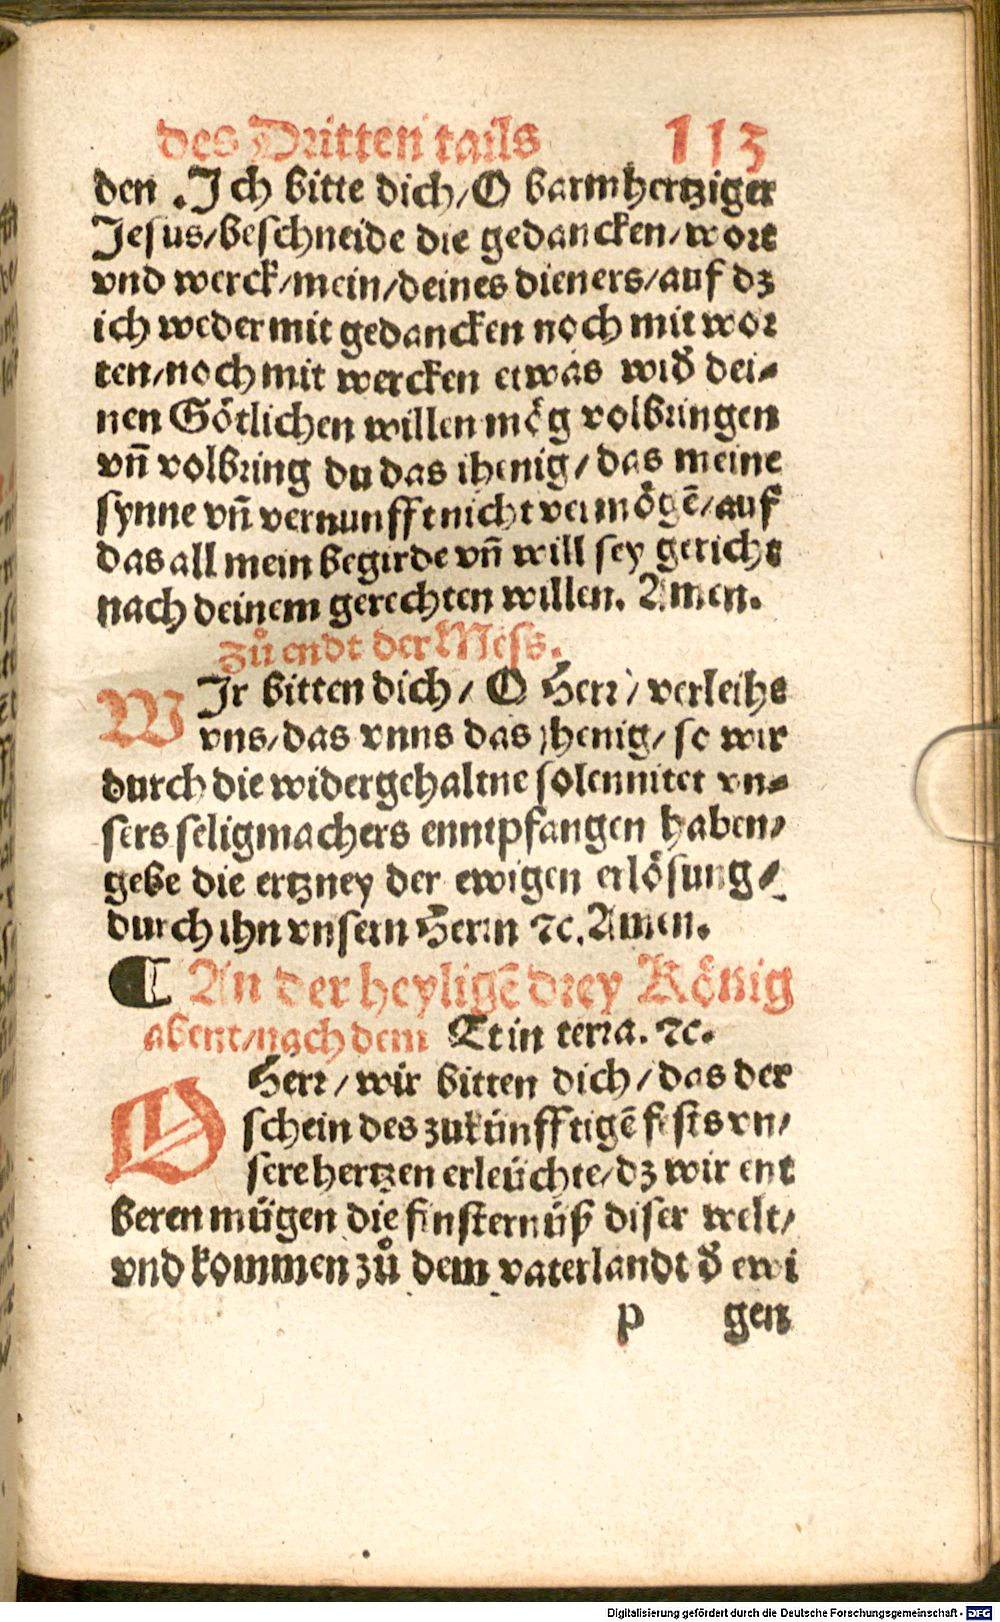 des Dritten tails 113
den . Jch bitte dich/ O barmhertziger
Jesus/ beschneide die gedancken/ wort
vnd werck/ mein/ deines dieners/ auf dz
ich weder mit gedancken noch mit wor
ten/ noch mit wercken etwas wiđ dei⸗
nen Götlichen willen mög volbringen
vn̄ volbring du das ihenig/ das meine
synne vn̄ vernunfft nicht vermögē/ auf
das all mein begirde vn̄ will sey gericht
nach deinem gerechten willen. Amen.
zů endt der Mess.
WJr bitten dich/ O Herr/ verleihe
vns/ das vnns das jhenig/ so wir
durch die widergehaltne solennitet vn⸗
sers seligmachers enntpfangen haben/
gebe die ertzney der ewigen erlösung/
durch ihn vnsern Herrn ⁊c. Amen.
¶ An der heyligē drey König
abent/ nach dem Et in terra. ⁊c.
O Herr/ wir bitten dich/ das der
schein des zukünfftigē fests vn/
sere hertzen erleüchte/ dz wir ent
beren mügen die finsternüß diser welt/
vnd kommen zů dem vaterlandt đ ewi
p gen
Digitalisierung gefördert durch die Deutsche Forschungsgemeinschaft - DFG